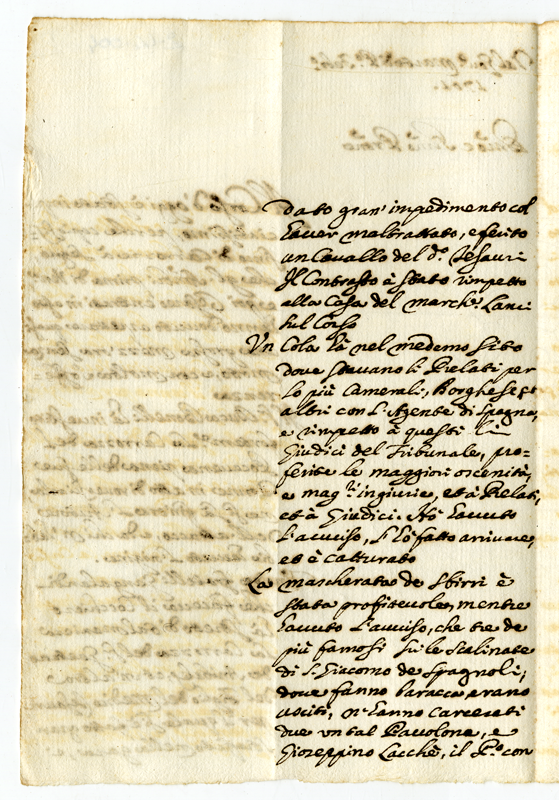 dato gran' impedimento col
hauer maltrattato, e ferito
un Cavallo del d.º Tesauri
Il Contrasto è stato rimpetto
alla Casa del march: Lanci
sul Corso
Un Cola là nel medemo sito
dove stavano li Prelati per
lo più Camerali, Borghese et
altri con l'Agente di Spagna,
e rimpetto à questi li
Giudici del Tribunale, pro=
ferite le maggiori oscenità,
e mag.ri ingiurie, et à Prelati,
et à Giudici. Hò hauuto
l'auuiso, l'hò fatto arriuare,
et è catturato
La mascherata de Sbirri è
stata profitevole, mentre
hauuto l'auuiso, che tre de
più famosi sù le Scalinate
di S. Giacomo de Spagnoli,
dove fanno baracca erano
usciti, n'hanno carcerati
due un tal Pavolone, e
Gioseppino Lacchè, il P.º con